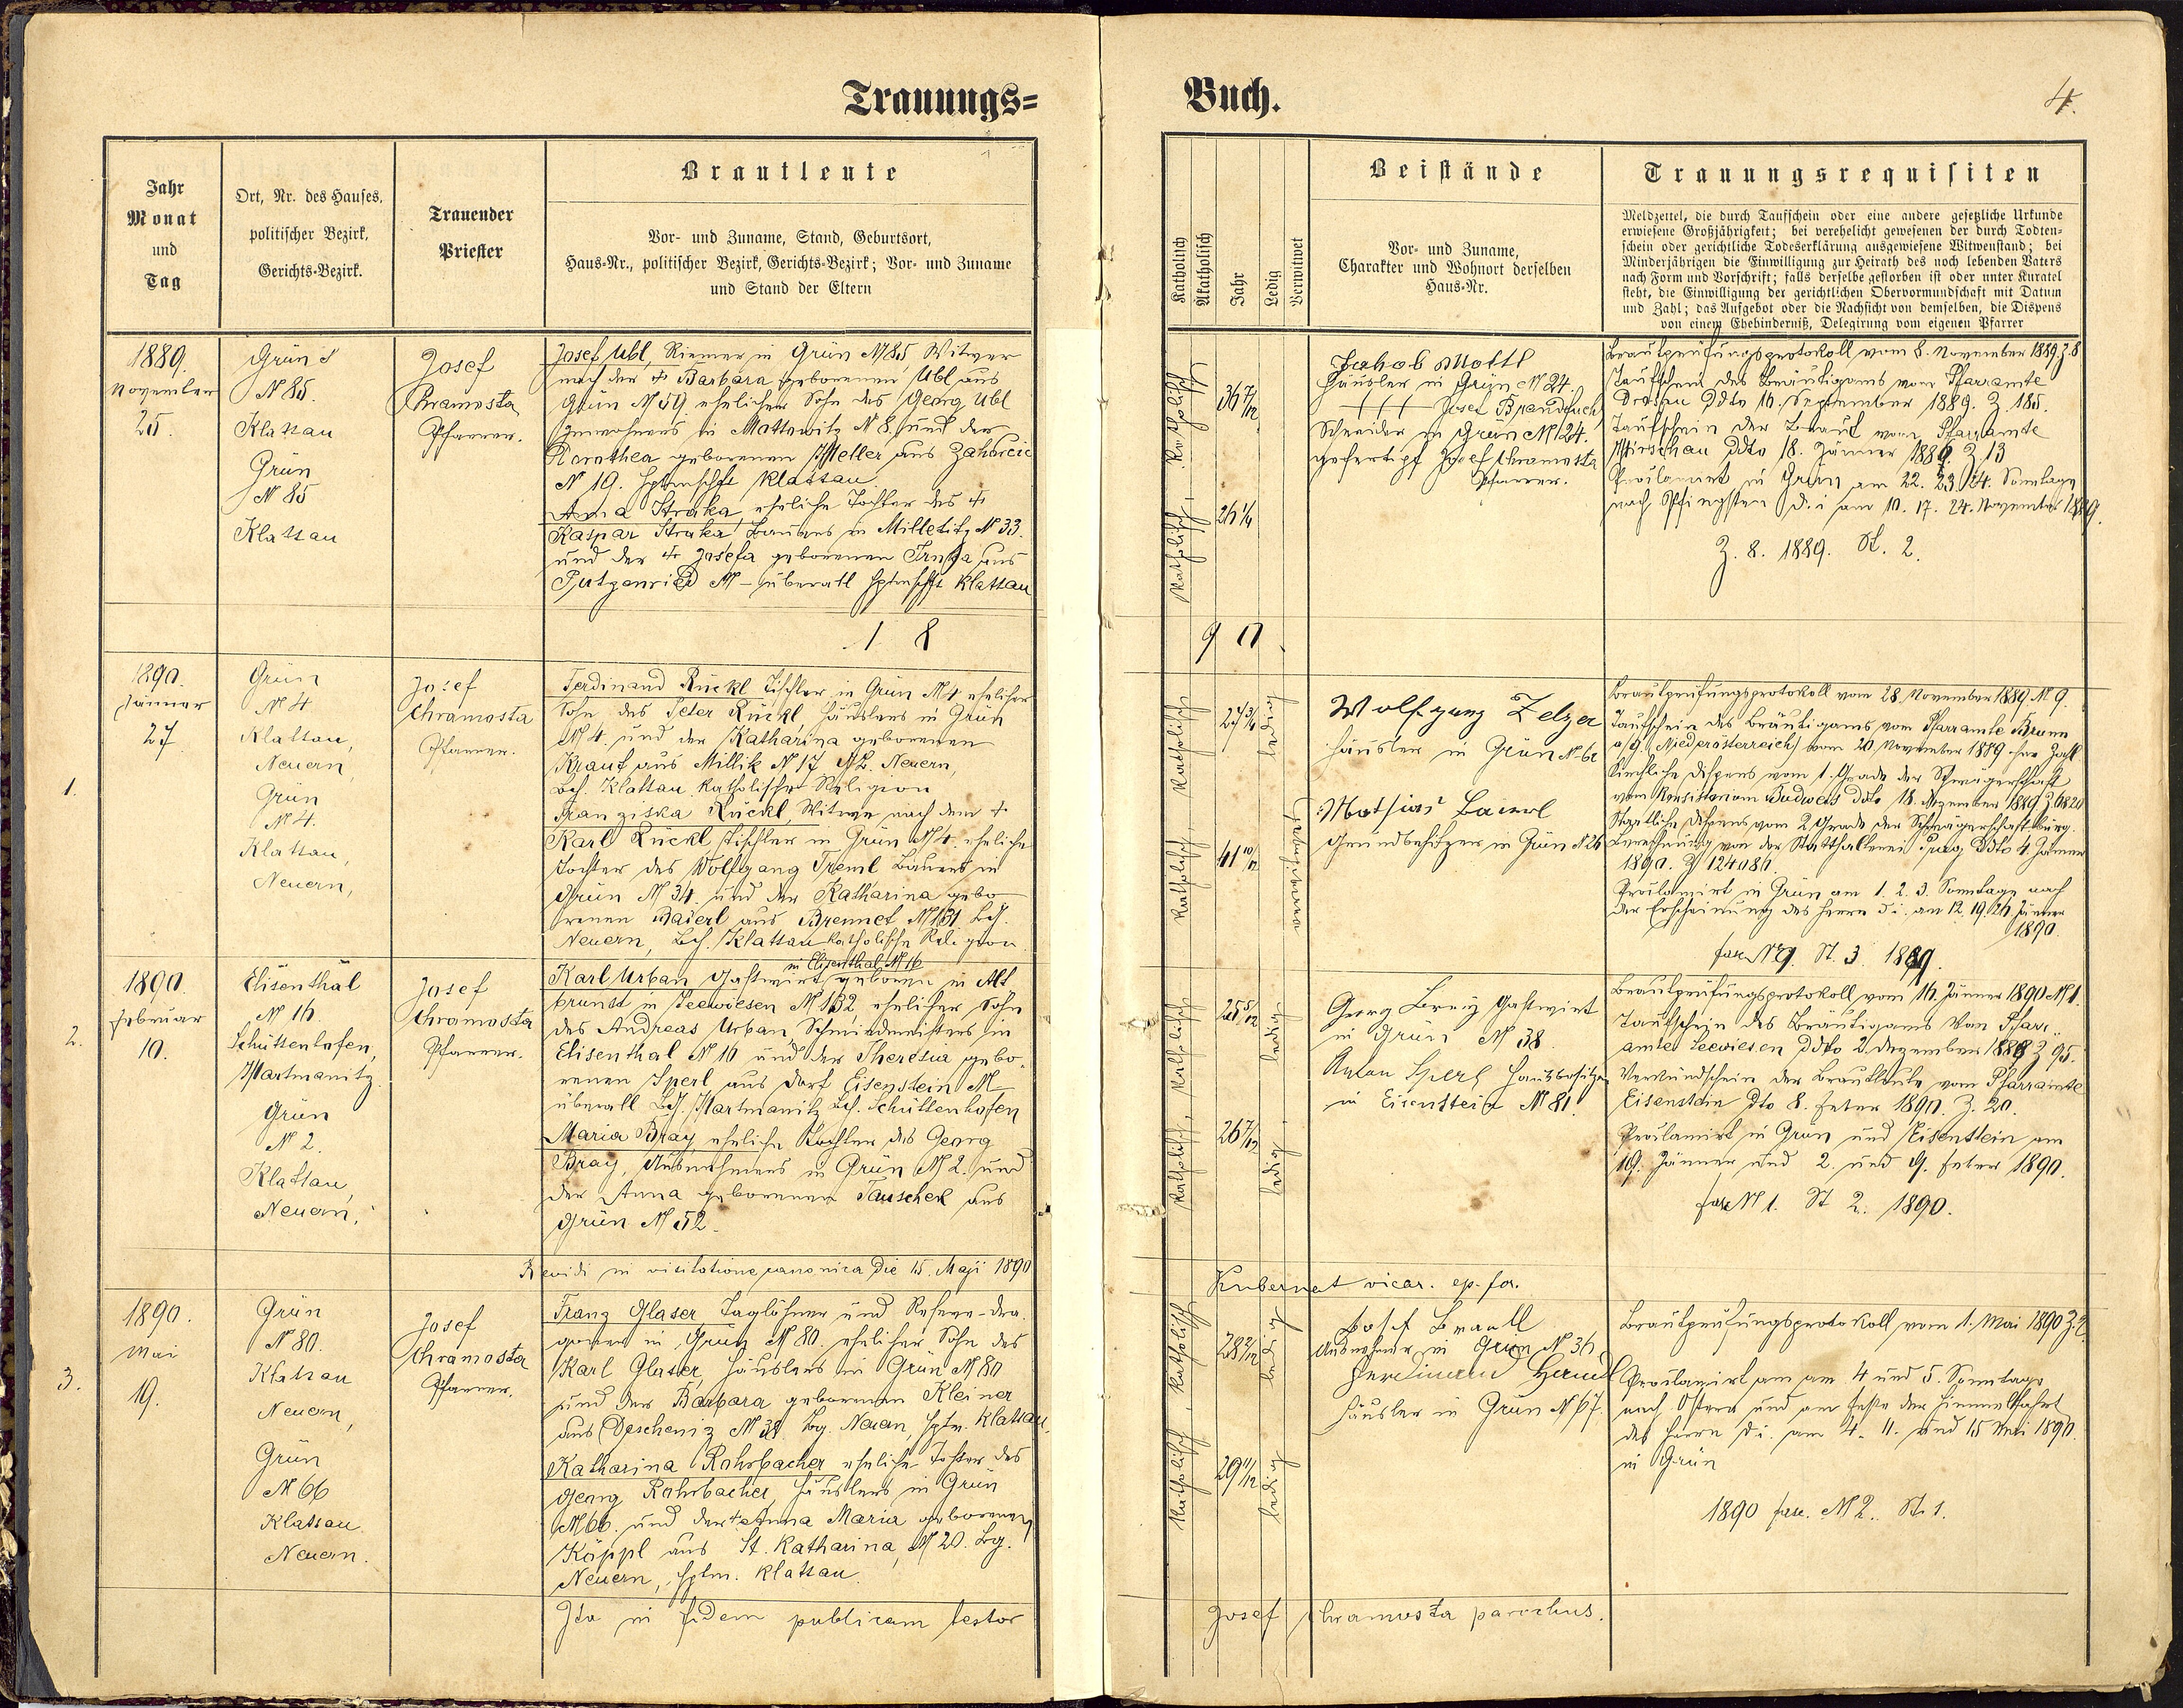 Trauungs=
Buch.
4.
Jahr
Monat
und
Tag
Ort, Nr. des Hauses,
politischer Bezirk,
Gerichts-Bezirk.
Trauender
Priester
Brautleute
Vor- und Zuname, Stand, Geburtsort,
Haus-Nr., politischer Bezirk, Gerichts-Bezirk; Vor- und Zuname
und Stand der Eltern
Katholisch
Akatholisch
Jahr
Ledig
Verwitwet
Beistände
Vor- und Zuname,
Charakter und Wohnort derselben
Haus-Nr.
Trauungsrequisiten
Meldzettel, die durch Taufschein oder eine andere gesetzliche Urkunde
erwiesene Großjährigkeit; bei verehelicht gewesenen der durch Todten-
schein oder gerichtliche Todeserklärung ausgewiesene Witwenstand; bei
Minderjährigen die Einwilligung zur Heirath des noch lebenden Vaters
nach Form und Vorschrift; falls derselbe gestorben ist oder unter Kuratel
steht, die Einwilligung der gerichtlichen Obervormundschaft mit Datum
und Zahl; das Aufgebot oder die Nachsicht von demselben, die Dispens
von einem Ehebinderniß, Delegirung vom eigenen Pfarrer
1889.
November
25.
Grün
N 85.
Klattau
Grün
N 85
Klattau
Josef
Chramosta
Pfarrer.
Josef Ubl, Riemer in Grün N 85, Witwer
nach der + Barbara geborenen Ubl aus
Grün N 59 ehelicher Sohn des Georg Ubl
Inwohners in Mottowitz N 8. und der
Dorothea geborenen Weller aus Zahorcic
N 19. Klattau.
Anna Straka, eheliche Tochter des +
Kaspar Straka Bauers in Milletitz N 33.
und der + Josefa geborenen aus
Putzenried N – überall Klattau
1 8
katholisch, katholisch
36 7/12
26 1/4
Jakob Mottl
Häusler in Grün N 24.
+++ Josef Brandtuch
Schneider in Grün N 124.
gefertigt Josef Chramosta
Pfarrer.
Brautprüfungsprotokoll vom 8. November 1889 Z. 8
Taufschein des Bräutigams vom Pfarramte
ddto 16. September 1889. Z. 185.
Taufschein der Braut vom Pfarramte
ddto 18. Jänner 1889. Z 13
Proclamirt in Grün am 22. 23. 24. Sonntage
nach Pfingsten d. i am 10. 17. 24. November 1889.
Z. 8. 1889. St. 2.
9
1.
1890.
Jänner
27
Grün
N 4
Klattau,
Neuern,
Grün
N 4.
Klattau,
Neuern,
Josef
Chramosta
Pfarrer.
Ferdinand Rückl Tischler in Grün N 4 ehelicher
Sohn des Peter Rückl, Häuslers in Grün
N 4. und der Katharina geborenen
Krauf aus Millik N 17 Neuern,
Bez. Klattau katholischer Religion
Franziska Rückl, Witwe nach dem +
Karl Rückl Tischler in Grün N 4. eheliche
Tochter des Wolfgang Treml Bauers in
Grün N 34. und der Katharina gebo
renen Baierl aus Brennet N 131
Neuern, Bez. Klattau katholische Religion.
katholisch, katholisch
27 3/4
41 10/12
ledig
Wolfgang Zelzer
Häusler in Grün
Mathias Baierl
Grundbesitzer in Grün N 26
Brautprüfungsprotokoll vom 28. November 1889 N 9.
Taufschein des Bräutigams vom Pfarramte Brunn
a/G. (Niederösterreich) vom 20. November 1889
Kirchliche Dispens vom 1. Grade der Schwägerschaft
vom Konsistorium Budweis ddto 18. Dezember 1889
Staatliche Dispens vom 2 Grade der Schwägerschaft
von der Statthalterei Prag ddto 4. Jänner
1890.
Proclamirt in Grün am 1. 2. 3. Sonntage nach
der Erscheinung des Herrn d. i. am 12. 19. 26. Jänner
1890.
fasc N 9. St. 3. 1889.
2.
1890
Februar
10.
Elisenthal
N 16.
Schüttenhofen,
Hartmanitz
Grün
N 2.
Klattau,
Neuern,
Josef
Chramosta
Pfarrer.
in Elisenthal N 16
Karl Urban Gastwirt geboren in Alt
brunst in Seewiesen N 132, ehelicher Sohn
des Andreas Urban, Schmiedmeisters in
Elisenthal N 16 und der Theresia gebo
renen Sperl aus Dorf Eisenstein N
überall Hartmanitz Schüttenhofen
Maria Bray, eheliche Tochter des Georg
Bray, Ausnehmers in Grün N 2. und
der Anna geborenen Tauschek aus
Grün N 52.
katholisch, katholisch
25 5/12
26 7/12
ledig
ledig
Georg Breÿ Gastwirt
in Grün N 38
Anton Sperl Hausbesitzer
in Eisenstein N 81.
Brautprüfungsprotokoll vom 16. Jänner 1890 N 1.
Taufschein des Bräutigams von Pfarr-
amte Seewiesen ddto 2. Dezember 1889 Z 95.
Verkündschein der Brautleute vom Pfarramte
Eisenstein dto 8. Feber 1890. Z. 20.
Proclamirt in Grün und Eisenstein am
19. Jänner und 2. und 9. Feber 1890.
fasc N 1. St 2. 1890.
Revidi in visitatione canonica die 15. Maji 1890
Kubernat vicar. ep. for.
3.
1890.
Mai
19.
Grün
N 80.
Klattau
Neuern,
Grün
N 66
Klattau
Neuern.
Josef
Chramosta
Pfarrer.
Franz Glaser Taglöhner und Reserve-Dra-
goner in Grün N 80. ehelicher Sohn des
Karl Glaser, Häuslers in Grün N 80
und der Barbara geborenen Kleiner
aus Deschenitz N 38. Bez. Neuern, Klattau.
Katharina Rohrbacher eheliche Tochter des
Georg Rohrbacher, Häuslers in Grün
N 66. und der + Anna Maria geborenen
Köppl aus St. Katharina, N 20. Bez.
Neuern, Klattau.
katholisch, katholisch
28 2/12
29 11/12
ledig
ledig
Josef Brandl
Ausnehmer in Grün N 36
Ferdinand
Häusler in Grün
Brautprüfungsprotokoll vom 1. Mai 1890 Z. 2.
Proclamirt am am 4 und 5. Sonntage
nach Ostern und am Feste der Himmelfahrt
des Herrn d. i. am 4. 11. und 15 Mai 1890.
in Grün
1890 fasc. N 2. St. 1.
Ita in fidem publicam testor
Josef Chramosta parochus.